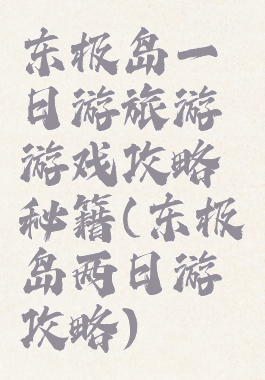 东极岛一
日游旅游
游戏攻略
秘籍(东极
岛两日游
攻略)